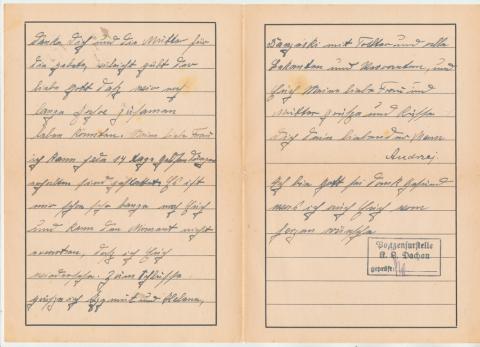 danke Dich und die Mutter für
die gebete, vileicht gübt der
liebe Gott daß wir noch
lange Jahre zusaman
leben konnten. Meine liebe Frau
ich kann jede 14 Tage
erhalten sind gestattet. Es ist
mir schon sehr bange nach Euch
und kann den Moment nicht
erwarten, daß ich Euch
wiedersehe. Zum Schlusse
grüße ich und Helena,
mit Tochter und alle
Bekanten und Verwanten, und
Euch Meine liebe Frau und
Mutter grüße und Küsse
Dich Dein liebender Mann
Andrej
Ich bin Gott sei dank gesund
was ich auch Euch vom
Herzen wünsche
Postzensurstelle
K. L. Dachau
geprüft: